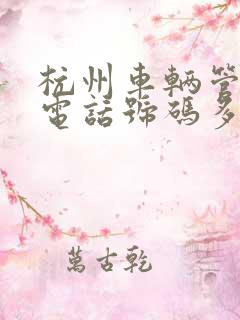 杭州車輛管
電話號碼多
萬古乾